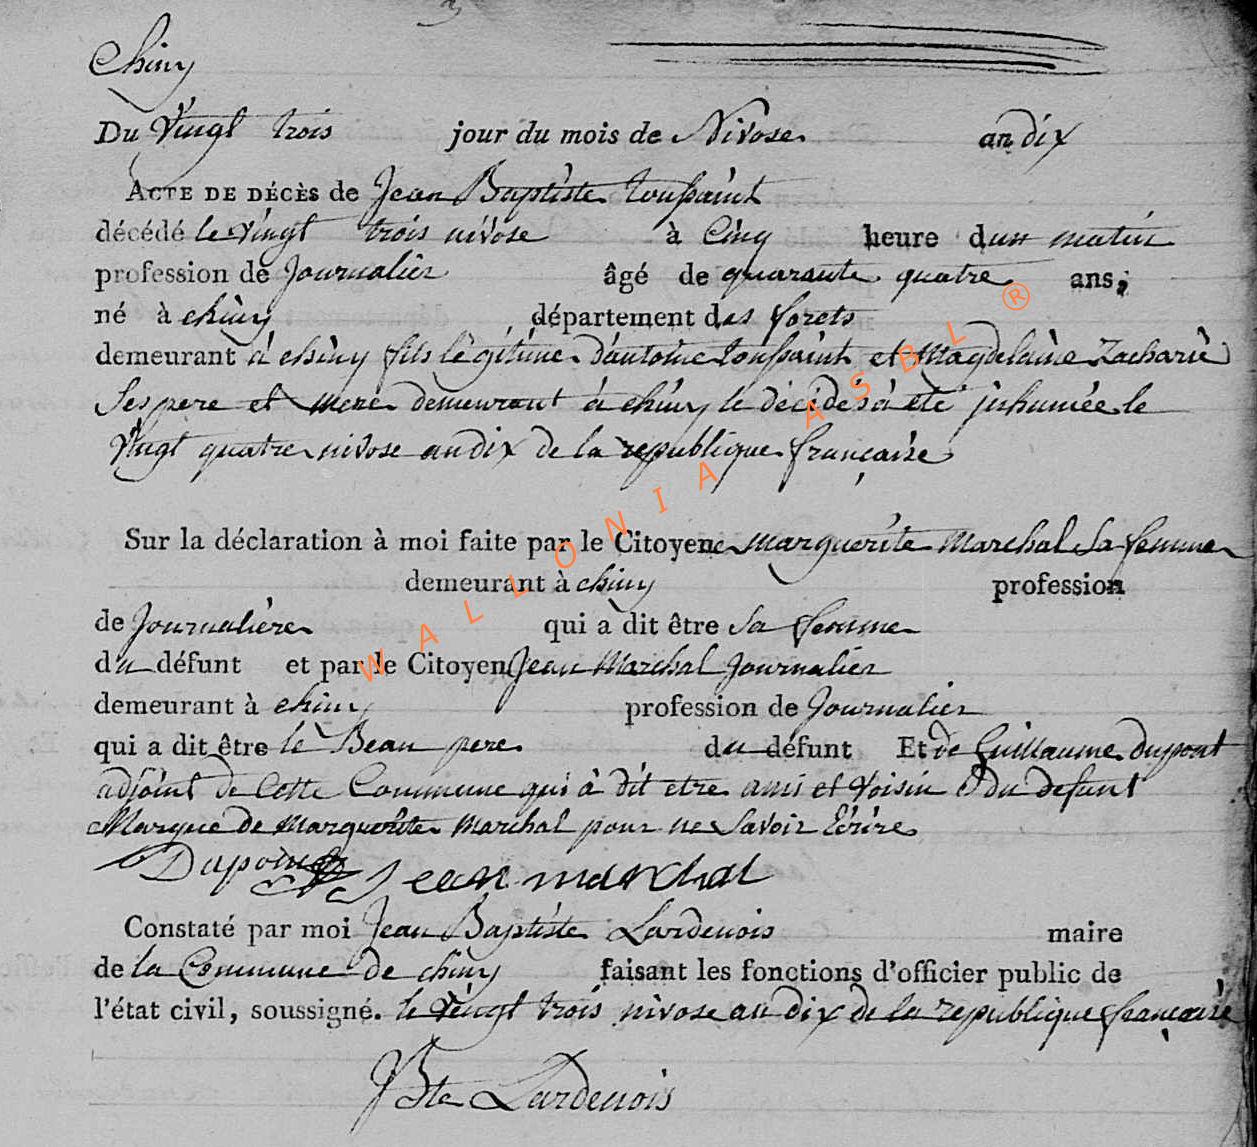 Chiny
Du Vingt trois jour du mois de Nivose an dix
ACTE DE DÉCÈS de Jean Baptiste toussaint
décédé le vingt trois nivose à Cinq heure dun matin
profession de Journalier âgé de quarante quatre ans,
né à chiny département des forets
demeurant à chiny fils légitime d'antoine toussaint et Magdelaine Zacharie
Ses pere et mere demeurant à chiny le décédés à eté inhumée le
Vingt quatre nivose an dix de la republique française
Sur la déclaration à moi faite par le Citoyenne marguerite Marchal Sa femme
demeurant à chiny profession
de Journalière qui a dit être Sa femme
du défunt et par le Citoyen Jean Marchal Journalier
demeurant à chiny profession de Journalier
qui a dit être le Beau pere du défunt Et de Guillaume dupont
adjoint de Cette Commune qui à dit etre ami et Voisin du defunt
Marque de Marguerite marchal pour ne Savoir Ecrire
Jean marchal
Constaté par moi Jean Baptiste Lardenois maire
de la Commune de chiny faisant les fonctions d'officier public de
l'état civil, soussigné. le Vingt trois nivose an dix de la republique française
JBte Lardenois
WALLONIA ASBL ®